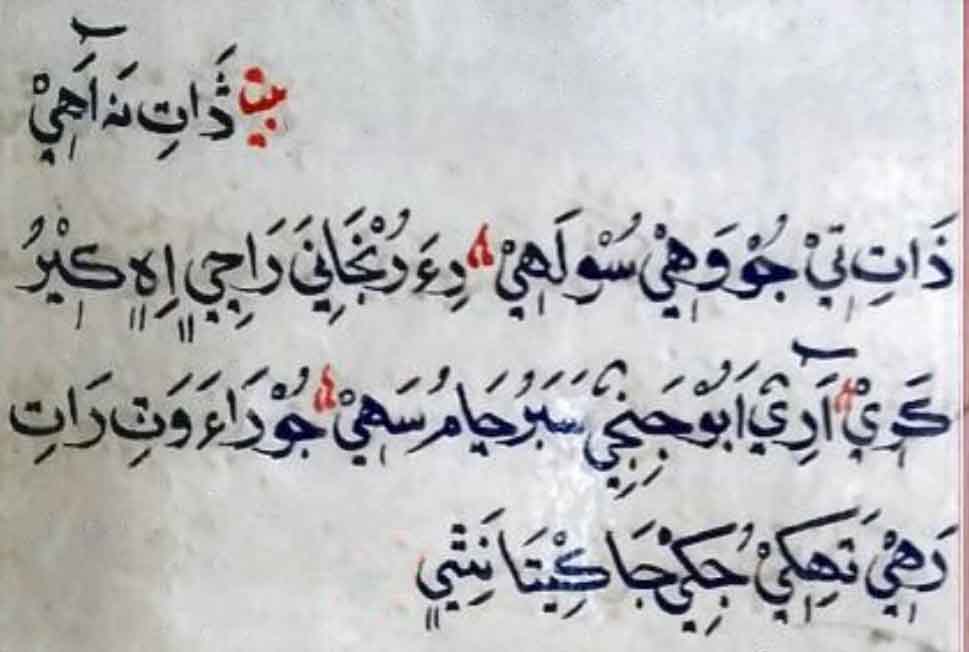 بيت ذَاتِ نَہ آهِيْ
ذَاتِ تيْ جُوْ وَهِيْ سُوْ لَهِيْ دِءَ رُنْجَانِيَ رَاجِي اِهِ ڪِيْرُ
ڪَرِيْ آرِيْ اَبُوْجَنِجيْ سَبَرُ جَامُ سَهِيْ جُوْ رَاءَ وَتِ رَاتِ
رَهِيْ تَهِڪيْ جِڪيْ جَا ڪِيْتَا نَٿِي